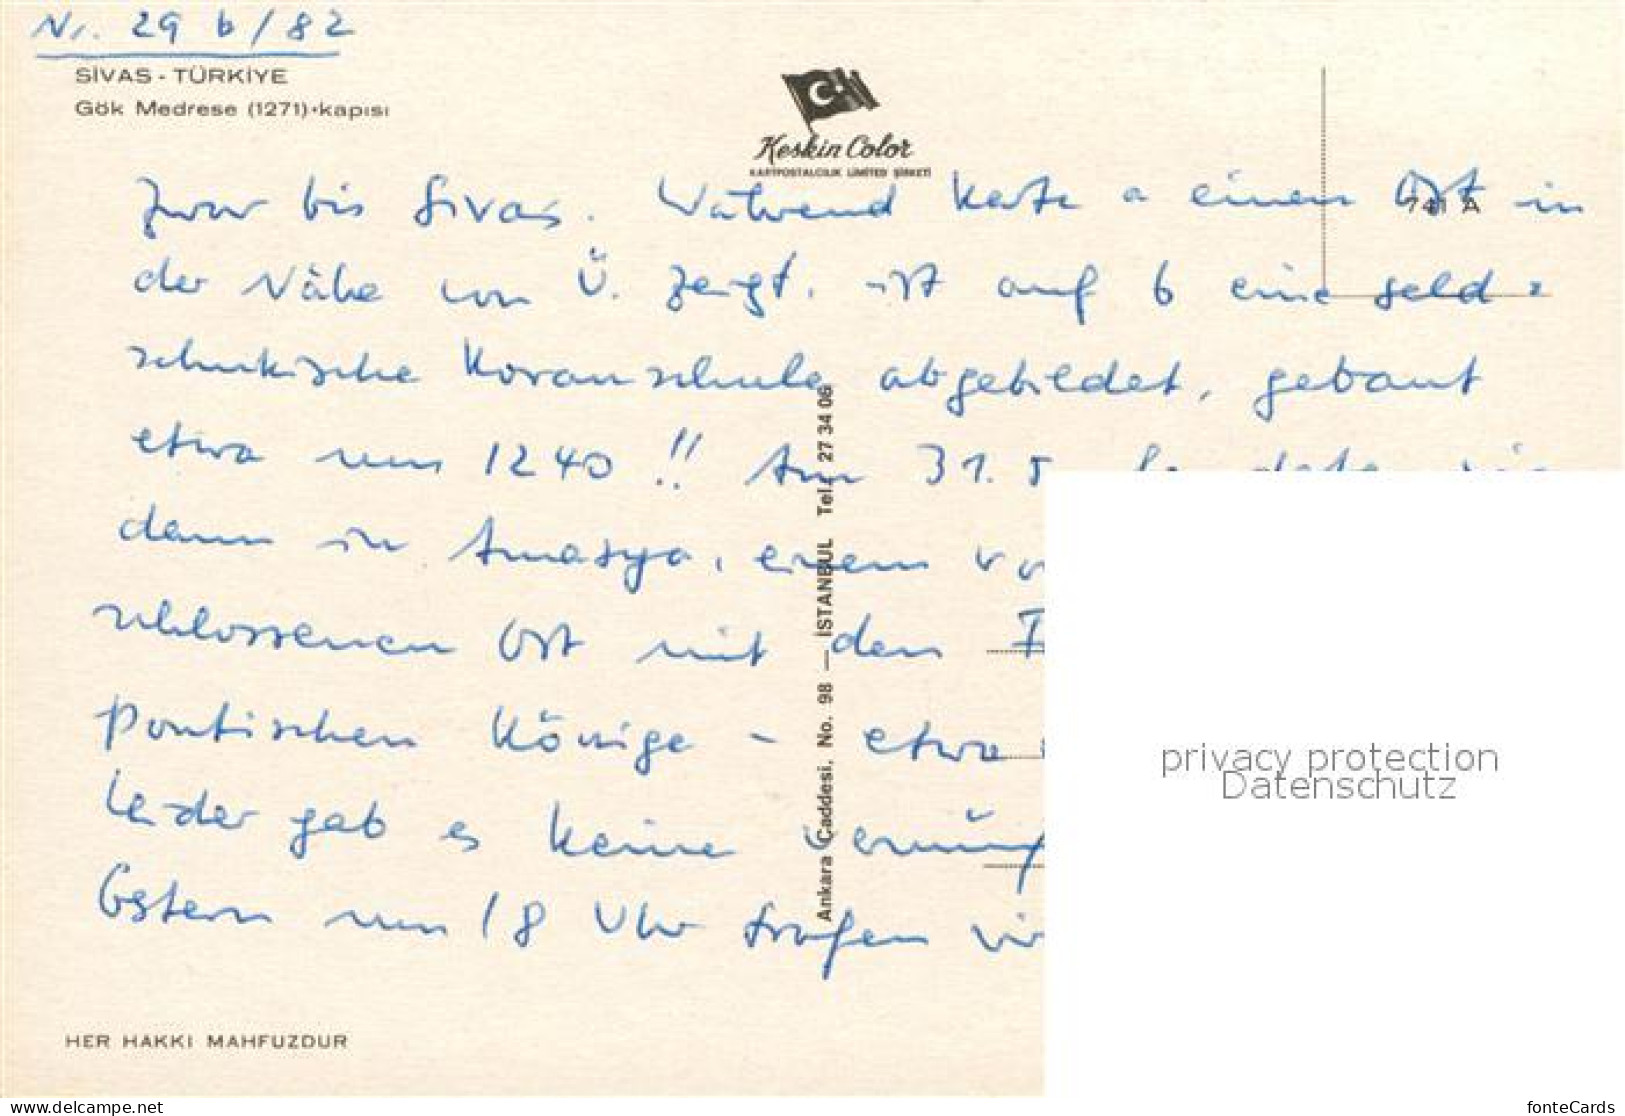 Nr. 29 b/82
SİVAS - TÜRKİYE
Gök Medrese (1271)•kapısı
Keskin Color
KARTPOSTALCILIK LIMITED ŞİRKETİ
741 A
zwar bis Sivas. Während Karte a einen Ort in
der Nähe von Ü. zeigt, ist auf b eine seld=
schukische Koranschule abgebildet, gebaut
etwa um 1240!! Am 31.5
dann in Amasya, einem
schlossenen Ort mit den
Pontischen Könige - etwa
Leider gab es keine
Gestern um 18 Uhr trafen wir
Ankara Caddesi, No. 98 — İSTANBUL Tel. 27 34 06
HER HAKKI MAHFUZDUR
privacy protection
Datenschutz
https://www.delcampe.net
fonteCards